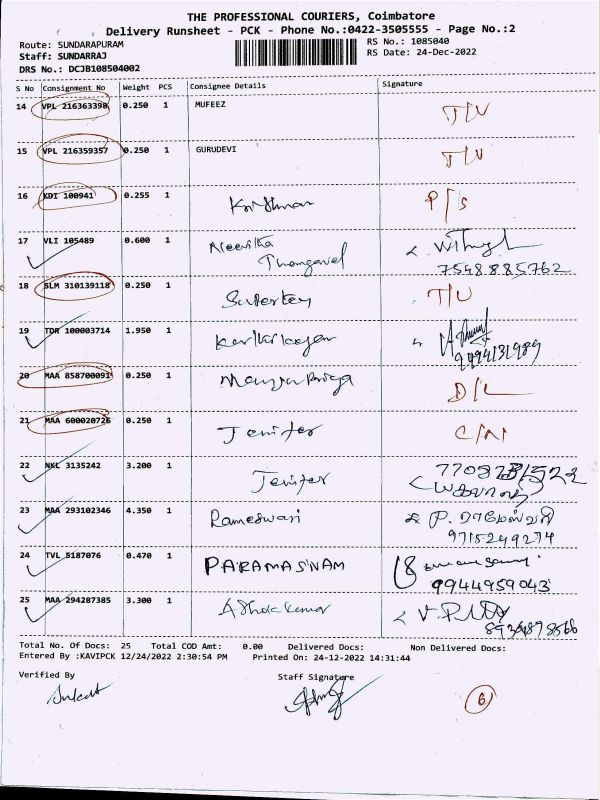 THE PROFESSIONAL COURIERS, Coimbatore
Delivery Runsheet - PCK - Phone No.:0422-3505555 - Page No.:2
Route: SUNDARAPURAM
RS No.: 1085040
Staff: SUNDARRAJ
RS Date: 24-Dec-2022
DRS No.: DCJB108504002
S No Consignment No Weight PCS Consignee Details Signature
14 VPL 216363390 0.250 1 MUFEEZ T/U
15 VPL 216359357 0.250 1 GURUDEVI T/U
16 KDI 100941 0.255 1 Krishnan P/S
17 VLI 105489 0.600 1 Neevitha
Thangavel
7548885762
18 SLM 310139118 0.250 1 T/U
19 TDR 100003714 1.950 1
9494131989
20 MAA 858700091 0.250 1 D/L
21 MAA 600020726 0.250 1 Jenifer C/N
22 NKL 3135242 3.200 1 Jenifer
23 MAA 293102346 4.350 1 Rameswari P. ராமேஸ்வரி
9715249274
24 TVL 5187076 0.470 1 PARAMASNAM
9944959043
25 MAA 294287385 3.300 1 Ashok kumar
Total No. Of Docs: 25 Total COD Amt: 0.00 Delivered Docs: Non Delivered Docs:
Entered By :KAVIPCK 12/24/2022 2:30:54 PM Printed On: 24-12-2022 14:31:44
Verified By Staff Signature
6